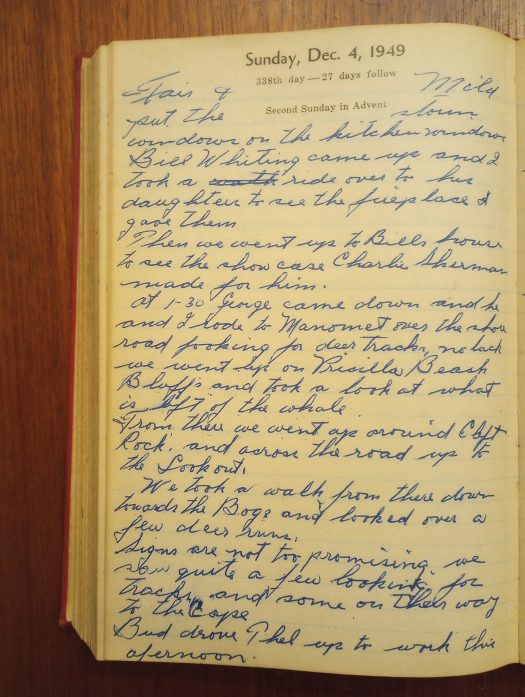 Sunday, Dec. 4, 1949
338th day — 27 days follow
Fair & Mild
Second Sunday in Advent
put the storm
windows on the kitchen windows
Bill Whiting came up and I
took a walk ride over to his
daughters to see the fireplace I
gave them
Then we went up to Bills house
to see the show case Charlie Sherman
made for him.
at 1-30 George came down and he
and I rode to Manomet over the shore
road looking for deer tracks, no luck
we went up on Pricilla Beach
Bluffs and took a look at what
is left of the whale.
From there we went up around Cleft
Rock. and across the road up to
the Lookout.
We took a walk from there down
towards the Bogs and looked over a
few deer runs.
Signs are not too promising we
saw quite a few looking for
tracks and some on their way
to the Cape
Bud drove Thel up to work this
afernoon.